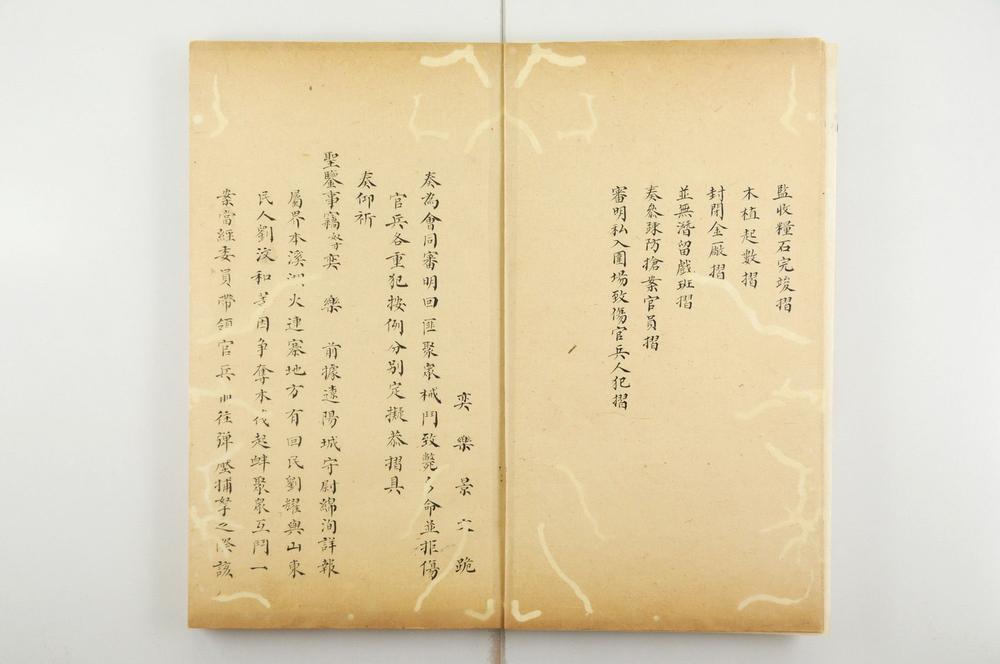 監收糧石完竣摺
木植起數摺
封開金廠摺
並無潛留戲班摺
奏叅疎防搶案官員摺
審明私入圍場致傷官兵人犯摺
奕 樂 景 六 跪
奏為會同審明回匪聚衆械鬥致斃多命並拒傷
官兵各重犯按例分别定擬恭摺具
奏仰祈
聖鑒事竊奴才奕 樂 前據遼陽城守尉綿洵詳報
屬界本溪湖火連寨地方有回民劉耀與山東
民人劉汶和等因争奪木伐起衅聚衆互鬥一
案當經委員帶領官兵前往彈壓捕拏之際該